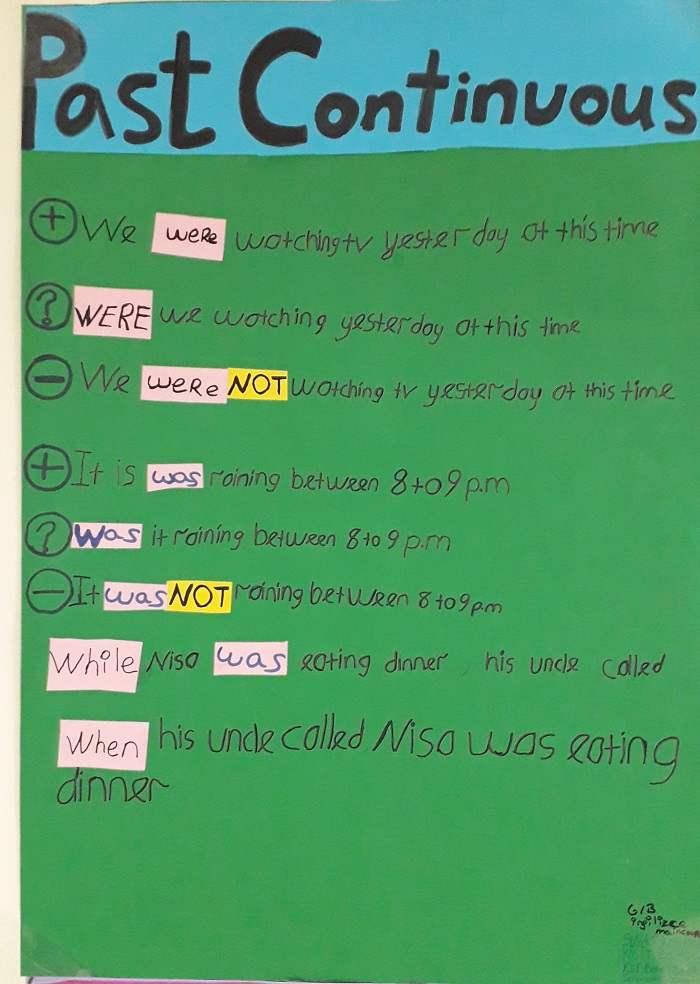 Past Continuous
+ We were watching tv yesterday at this time
? WERE we watching yesterday at this time
− We were NOT watching tv yesterday at this time
+ It is was raining between 8 to 9 p.m
? Was it raining between 8 to 9 p.m
− It was NOT raining between 8 to 9 pm
While Nisa was eating dinner, his uncle called
When his uncle called Nisa was eating
dinner
6/B